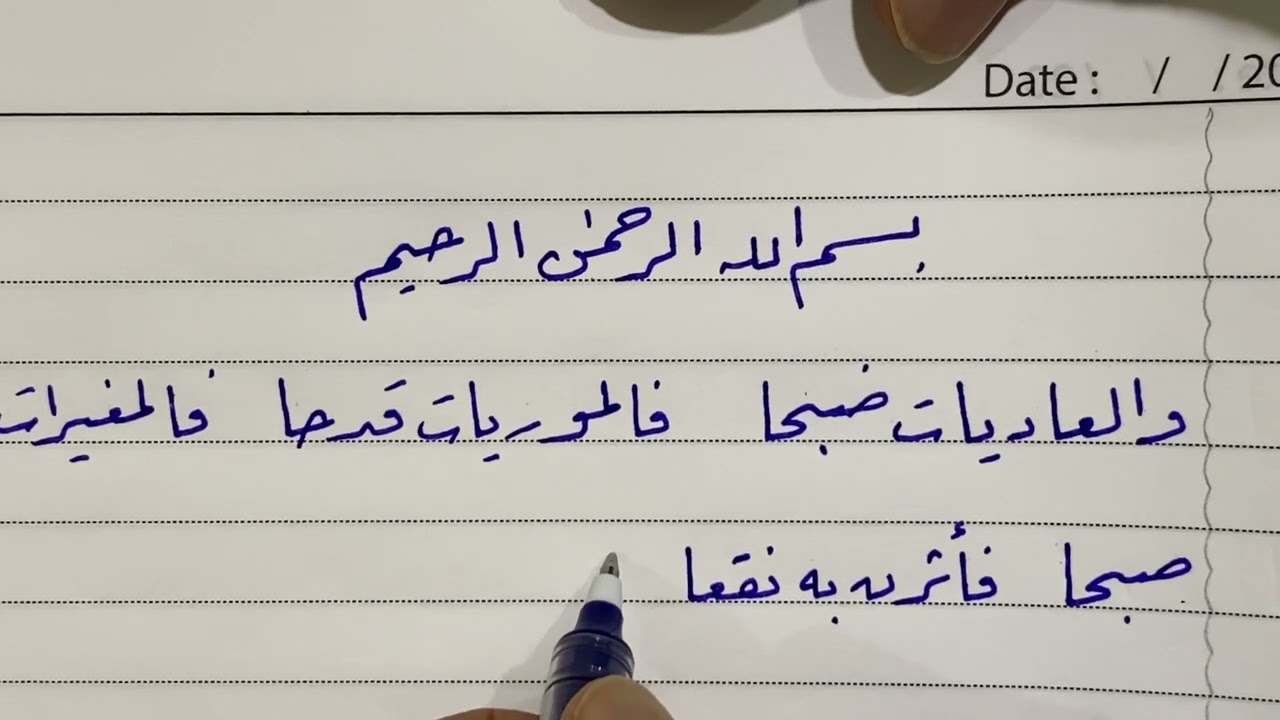 Date : / / 20
بسم الله الرحمن الرحيم
والعاديات ضبحا فالموريات قدحا فالمغيرات
صبحا فأثرن به نقعا